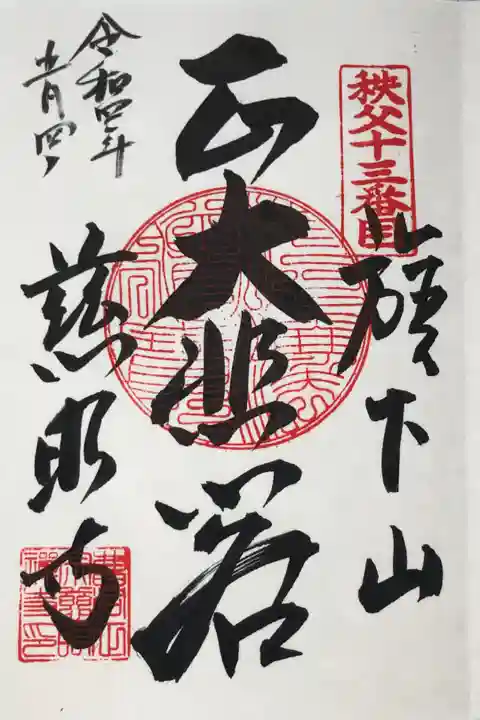 秩父十三番目
旗下山
正大悲閣
慈眼寺
令和四年
五月四日